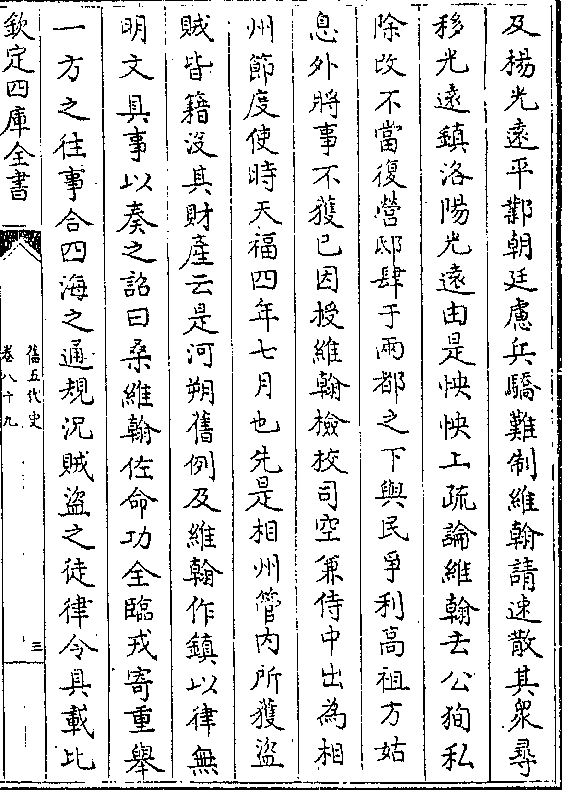 及楊光遠平鄴朝廷慮兵驕難制維翰請速散其衆尋
移光遠鎮洛陽光遠由是怏怏上疏論維翰去公狥私
除改不當復營邸肆于兩都之下與民爭利高祖方姑
息外將事不獲已因授維翰檢校司空兼侍中出為相
州節度使時天福四年七月也先是相州管內所獲盜
賊皆籍沒其財產云是河朔舊例及維翰作鎮以律無
明文具事以奏之詔曰桑維翰佐命功全臨戎寄重舉
一方之往事合四海之通規況賊盜之徒律令具載比
欽定四庫全書
舊五代史
卷八十九
三